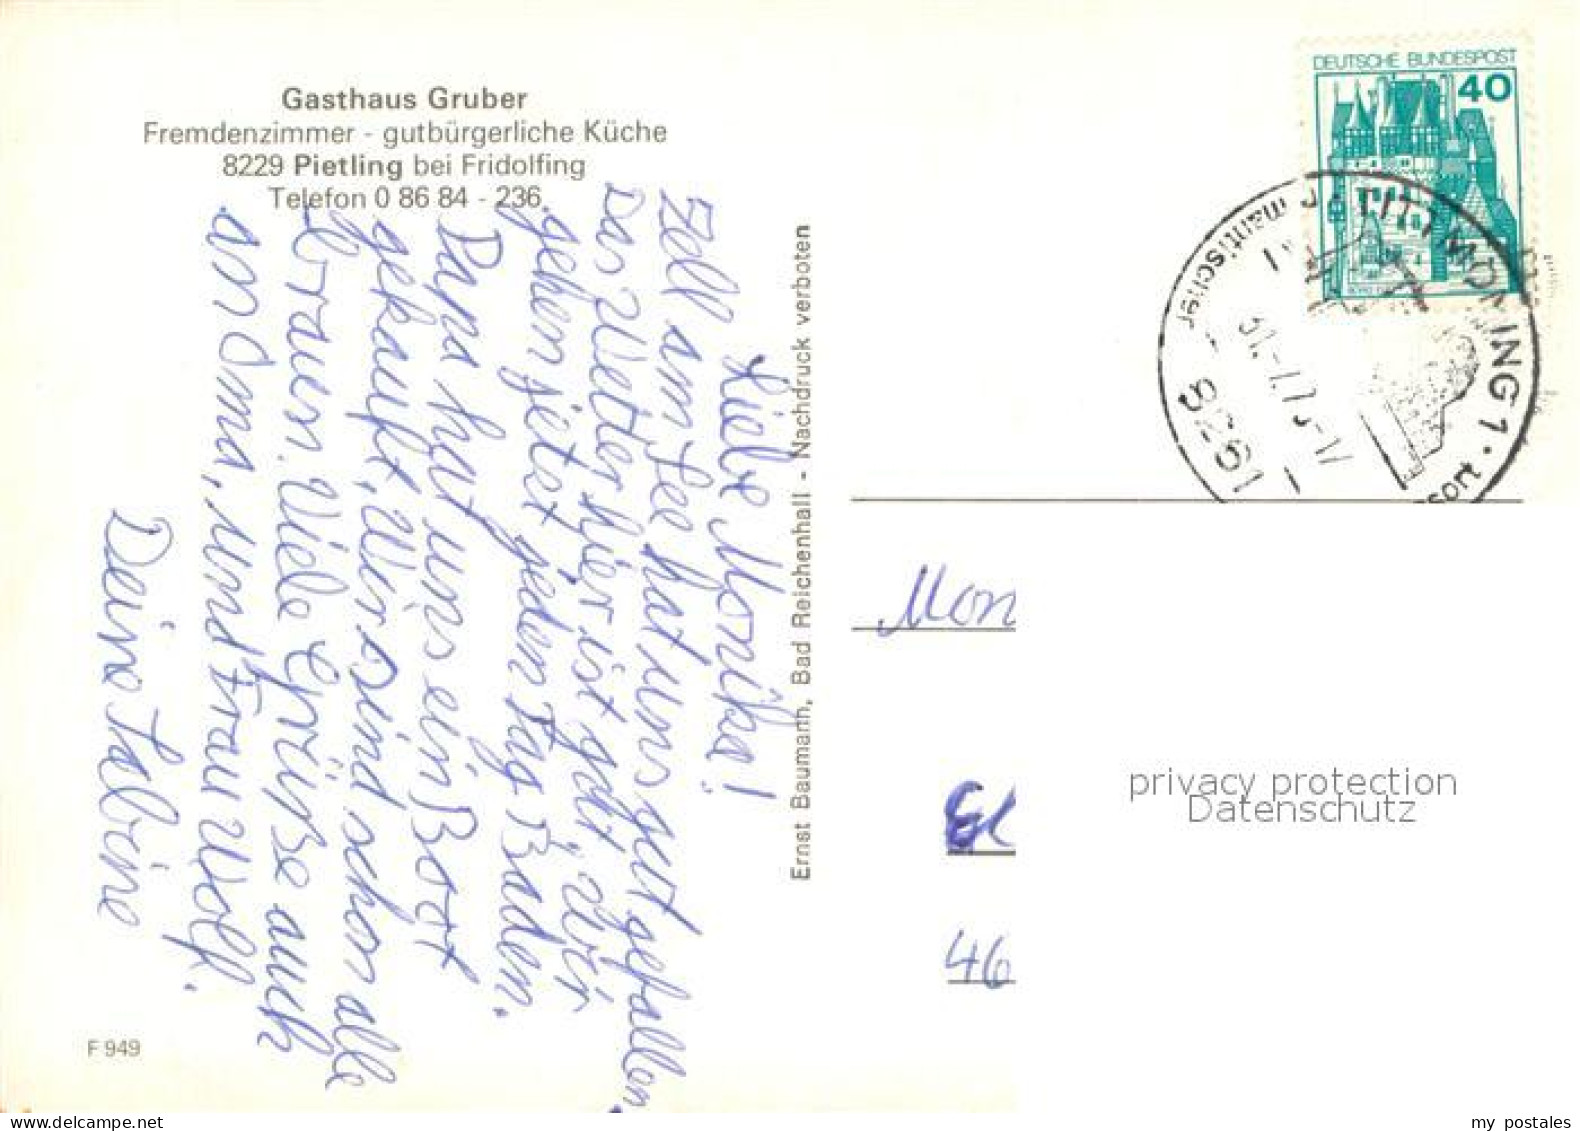 Gasthaus Gruber
Fremdenzimmer - gutbürgerliche Küche
8229 Pietling bei Fridolfing
Telefon 0 86 84 - 236
Liebe Monika!
Zell am See hat uns gut gefallen.
Das Wetter hier ist gott, Wir
gehen jetzt jeden Tag Baden.
Papa hat uns ein Boot
gekauft, Wir sind schon alle
braun. Viele Grüße auch
an Oma, und Frau Wolf.
Deine Sabine
F 949
Ernst Baumann, Bad Reichenhall - Nachdruck verboten
DEUTSCHE BUNDESPOST
40
TITTMONING 1
8261
mantischer
Mon
46
privacy protection
Datenschutz
my postales